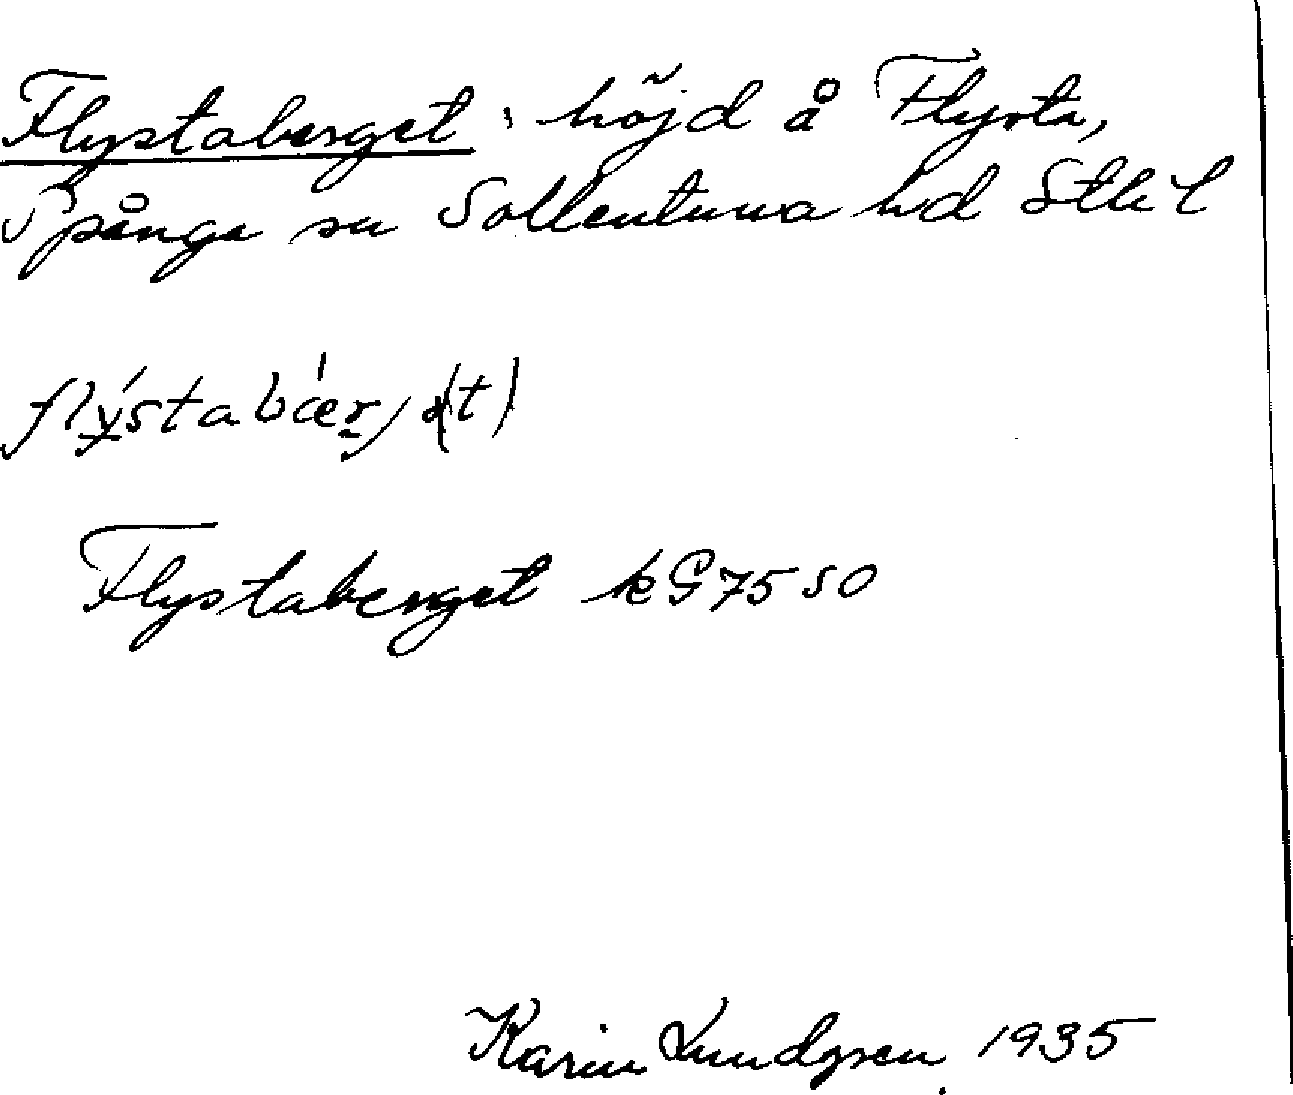 Flystaberget, höjd å Flysta,
Spånga sn Sollentuna hd Sthl l
flýstabær, ə(t)
Flystaberget kG75 SO
Karin Lundgren 1935